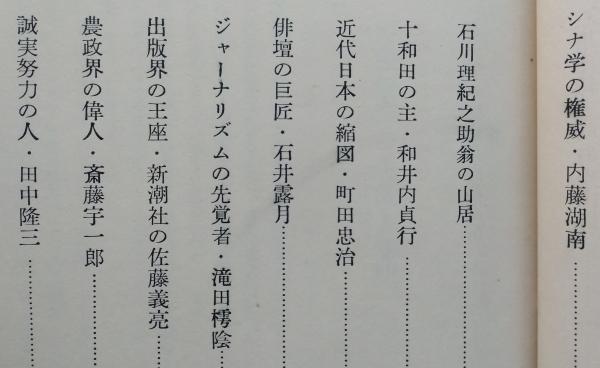 シナ学の権威・内藤湖南…………
石川理紀之助翁の山居…………
十和田の主・和井内貞行…………
近代日本の縮図・町田忠治…………
俳壇の巨匠・石井露月…………
ジャーナリズムの先覚者・滝田樗陰……
出版界の王座・新潮社の佐藤義亮……
農政界の偉人・斎藤宇一郎…………
誠実努力の人・田中隆三…………